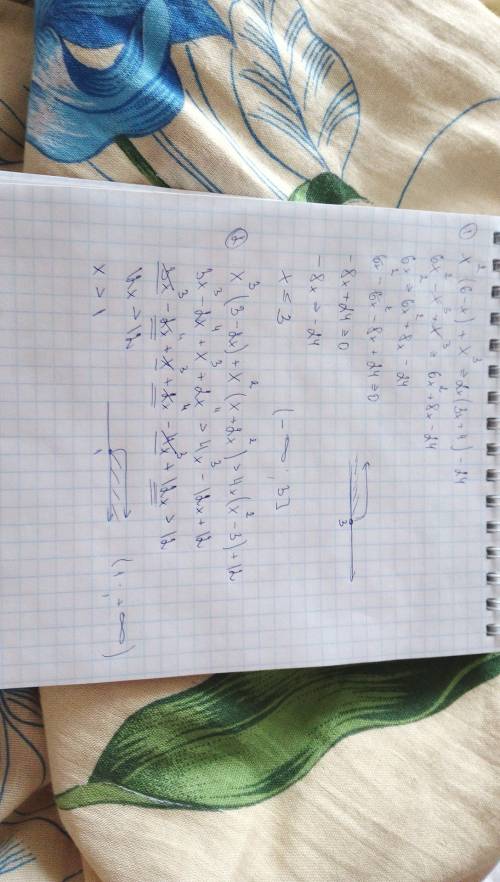 ① x²(6-x) + x³ ≥ 2x(3x+4) - 24
6x² - x³ + x³ ≥ 6x² + 8x - 24
6x² ≥ 6x² + 8x - 24
6x² - 6x² - 8x + 24 ≥ 0
-8x + 24 ≥ 0
-8x ≥ -24
3
x ≤ 3 (-∞; 3]
② x³(3-2x) + x²(x+2x²) > 4x(x²-3) + 12
3x³ - 2x⁴ + x³ + 2x⁴ > 4x³ - 12x + 12
3x³ - 2x⁴ + x³ + 2x⁴ - 4x³ + 12x > 12
12x > 12
x > 1
1
(1; +∞)